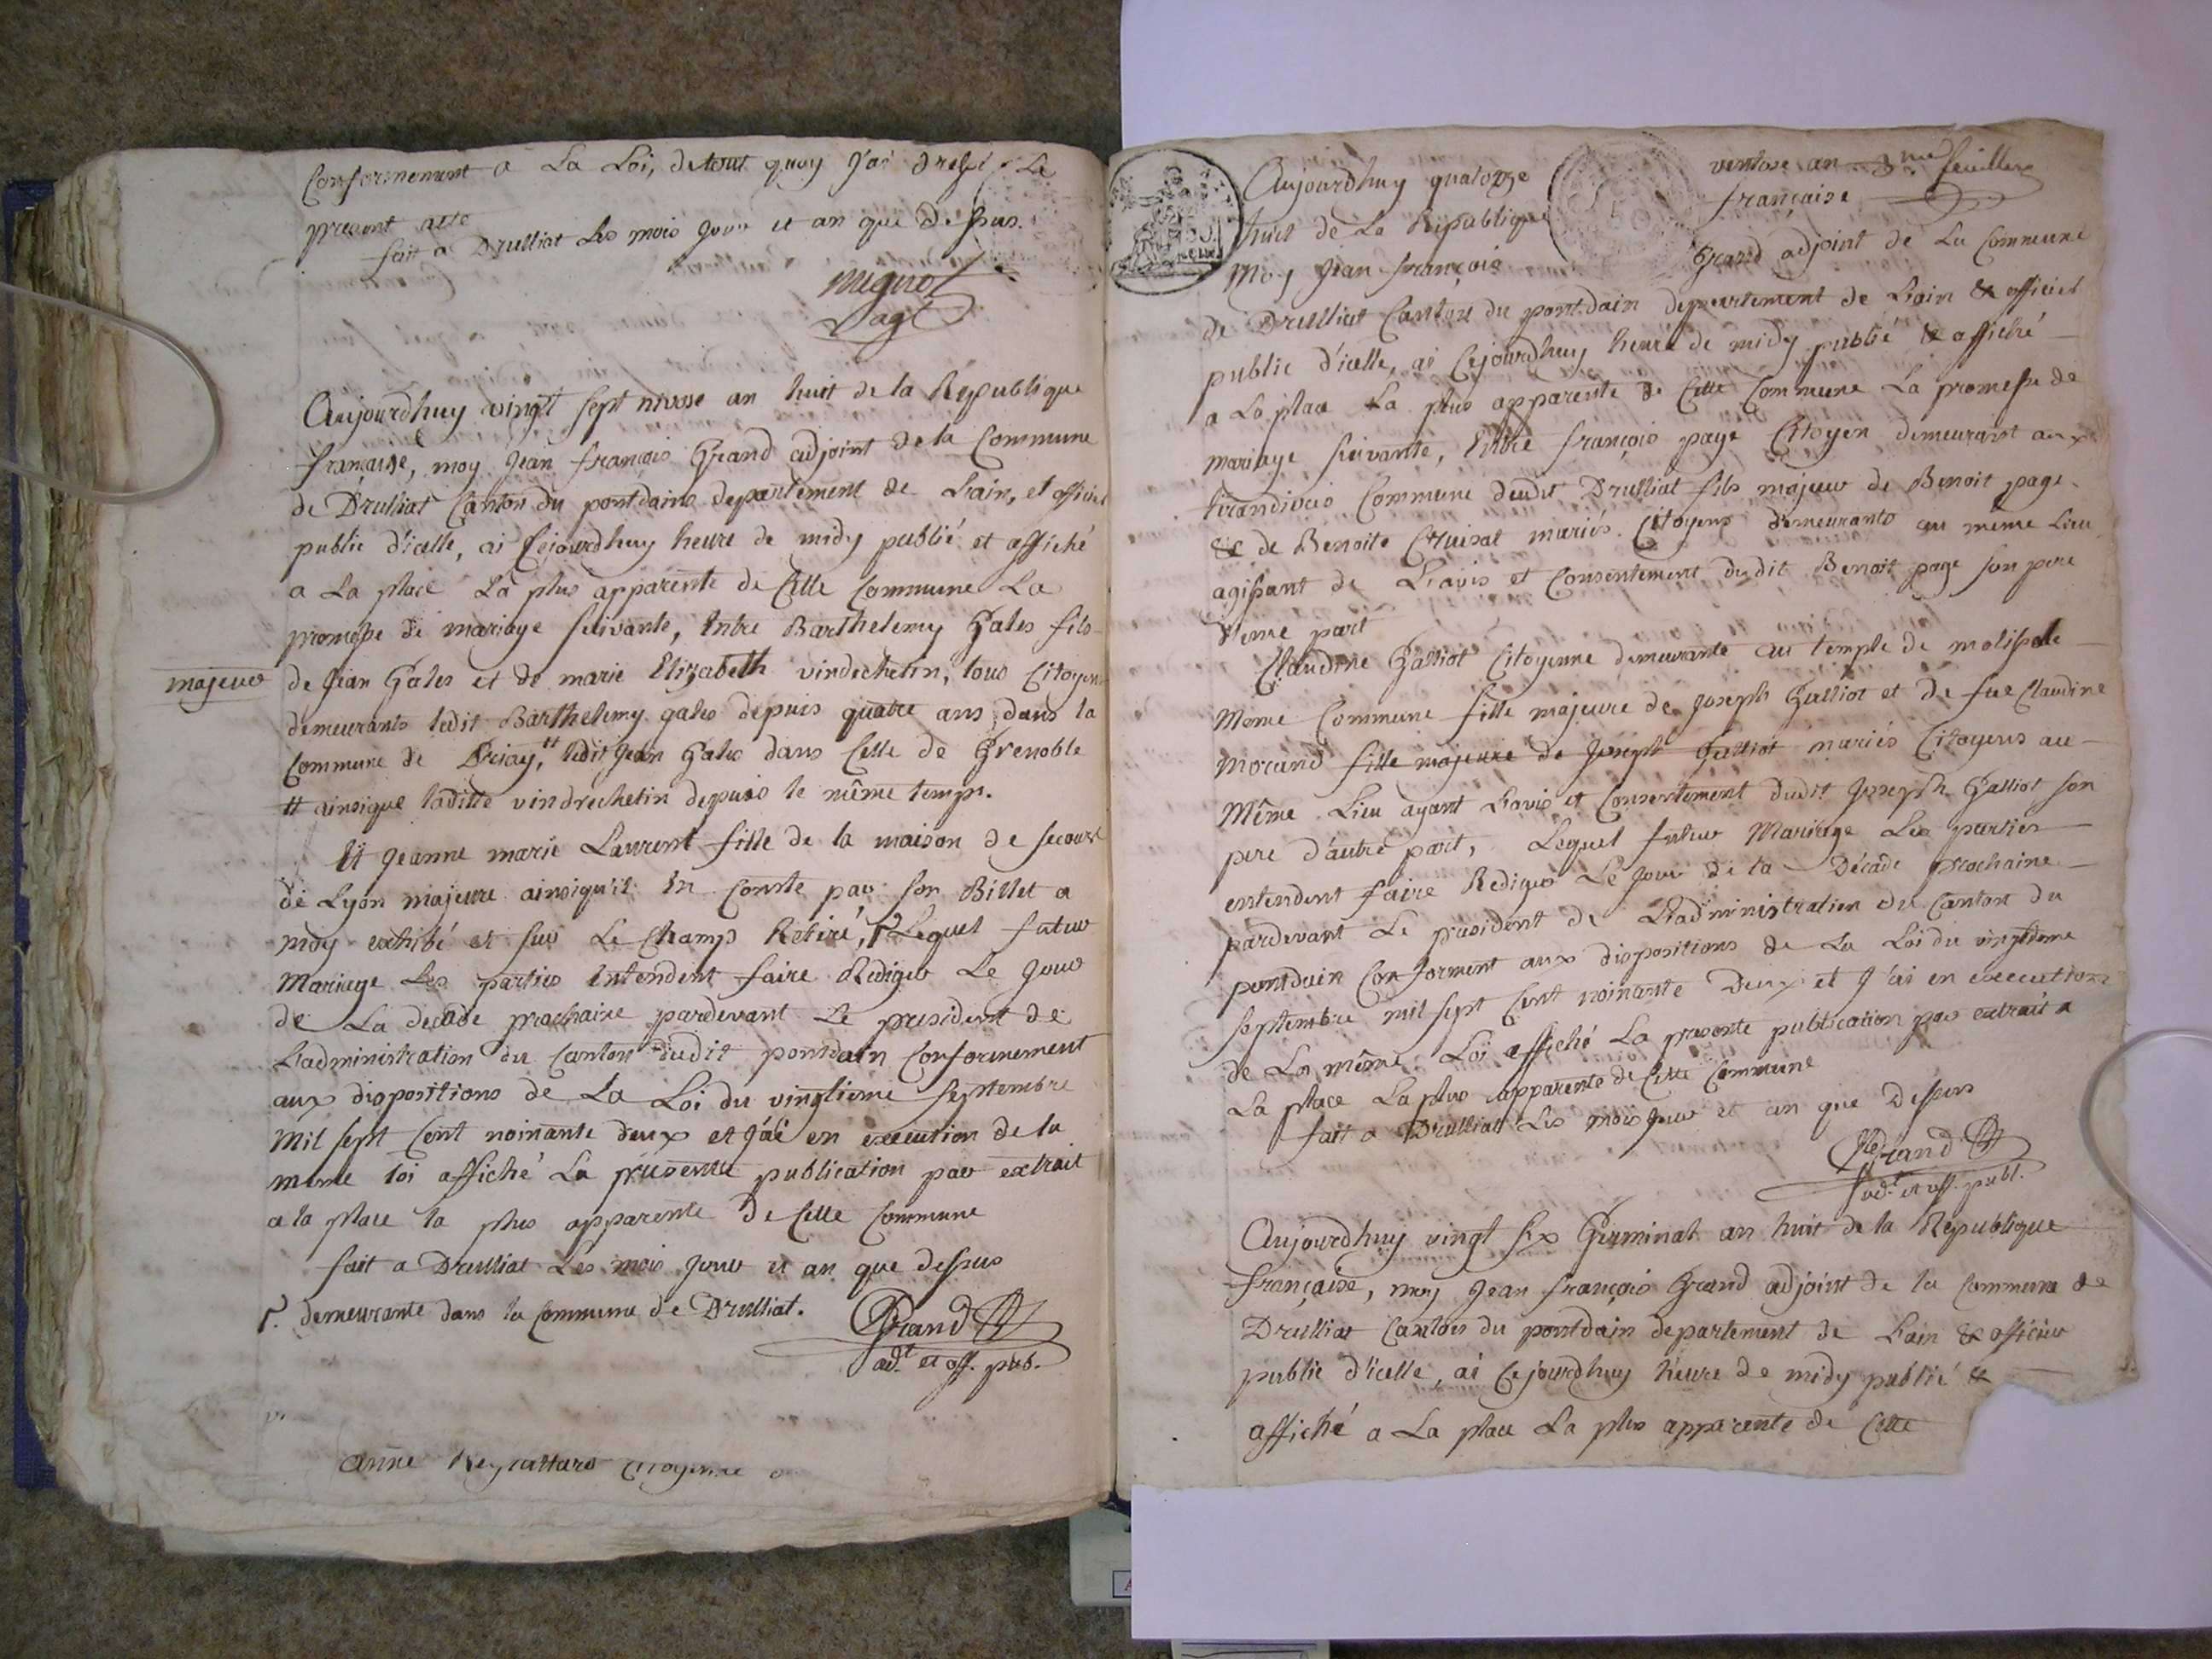 Conformement a La Loi, detout quoy j'ai dressé Le
present acte
fait a Drulliat Les mois jour et an que Dessus.
Mignot
agt
Aujourdhuy vingt sept nivose an huit de la Republique
française, moy jean françois Grand adjoint de la Commune
de Drulliat Canton du pontdains departement de Lain, et officier
public d'icelle, ai cejourdhuy heure de midy publié et affiché
a La place La plus apparente de Cette Commune La
promesse de mariage suivante, Entre Barthelemy Gales fils
majeur
de jean Gales et de marie Elizabeth vindrechetin, tous Citoyens
demeurants ledit Barthelemy gales depuis quatre ans dans la
Commune de Priay, # ledit jean Gales dans Celle de Grenoble
# ainsique laditte vindrechetin depuis le même temps.
Et jeanne marie Laurent fille de la maison de secours
de Lyon majeure ainsiqu'il En Conste par son Billet a
moy exhibé et sur Le Champ Retiré, Γ Lequel futur
Mariage Les parties Entendent faire Rediger Le jour
de La decade prochaine pardevant Le president de
L'administration du Canton dudit pontdain Conformement
aux dispositions de La Loi du vingtieme septembre
Mil sept Cent noinante deux et j'ai en execution de la
même loi affiché La presente publication par extrait
a la place la plus apparente de Cette Commune
fait a Drulliat Les mois jour et an que dessus
Γ. demeurante dans la Commune de Drulliat.
Grand
adt. et off. pub.
anne Citoyenne
Aujourdhuy quatorze ventose an 3me feuillet
huit de La Republique française
Moy jean françois Grand adjoint de La Commune
de Drulliat Canton du pontdain departement de Lain & officier
public d'icelle, ai Cejourdhuy heure de midy publié & affiché
a La place La plus apparente de Cette Commune La promesse de
mariage suivante, Entre françois page Citoyen demeurant aux
Commune dudit Drulliat fils majeur de Benoit page
& de Benoite Cruisat mariés Citoyens demeurants au même Lieu
agissant de L'avis et Consentement dudit Benoit page son pere
d'une part
Claudine Galliot Citoyenne demeurante au temple de molissole
Même Commune fille majeure de joseph Galliot et de feue Claudine
Morand fille majeure de joseph Galliot mariés Citoyens au
Même Lieu ayant L'avis et Consentement dudit joseph Galliot son
pere d'autre part, Lequel futur Mariage Les parties
entendent faire Rediger Le jour de la Décade prochaine
pardevant Le president de L'administration du Canton du
pontdain Conforment aux dispositions de La Loi du vingtieme
septembre mil sept Cent noinante Deux et j'ai en execution
de La même Loi affiché La presente publication par extrait a
La place La plus apparente de Cette Commune
fait a Drulliat Les mois jour et an que Dessus
Grand
adt. et off. publ.
Aujourdhuy vingt six Germinal an huit de la Republique
française, moy jean françois Grand adjoint de la Commune de
Drulliat Canton du pontdain departement de Lain & officier
public d'icelle, ai Cejourdhuy heure de midy publié &
affiché a La place La plus apparente de Cette